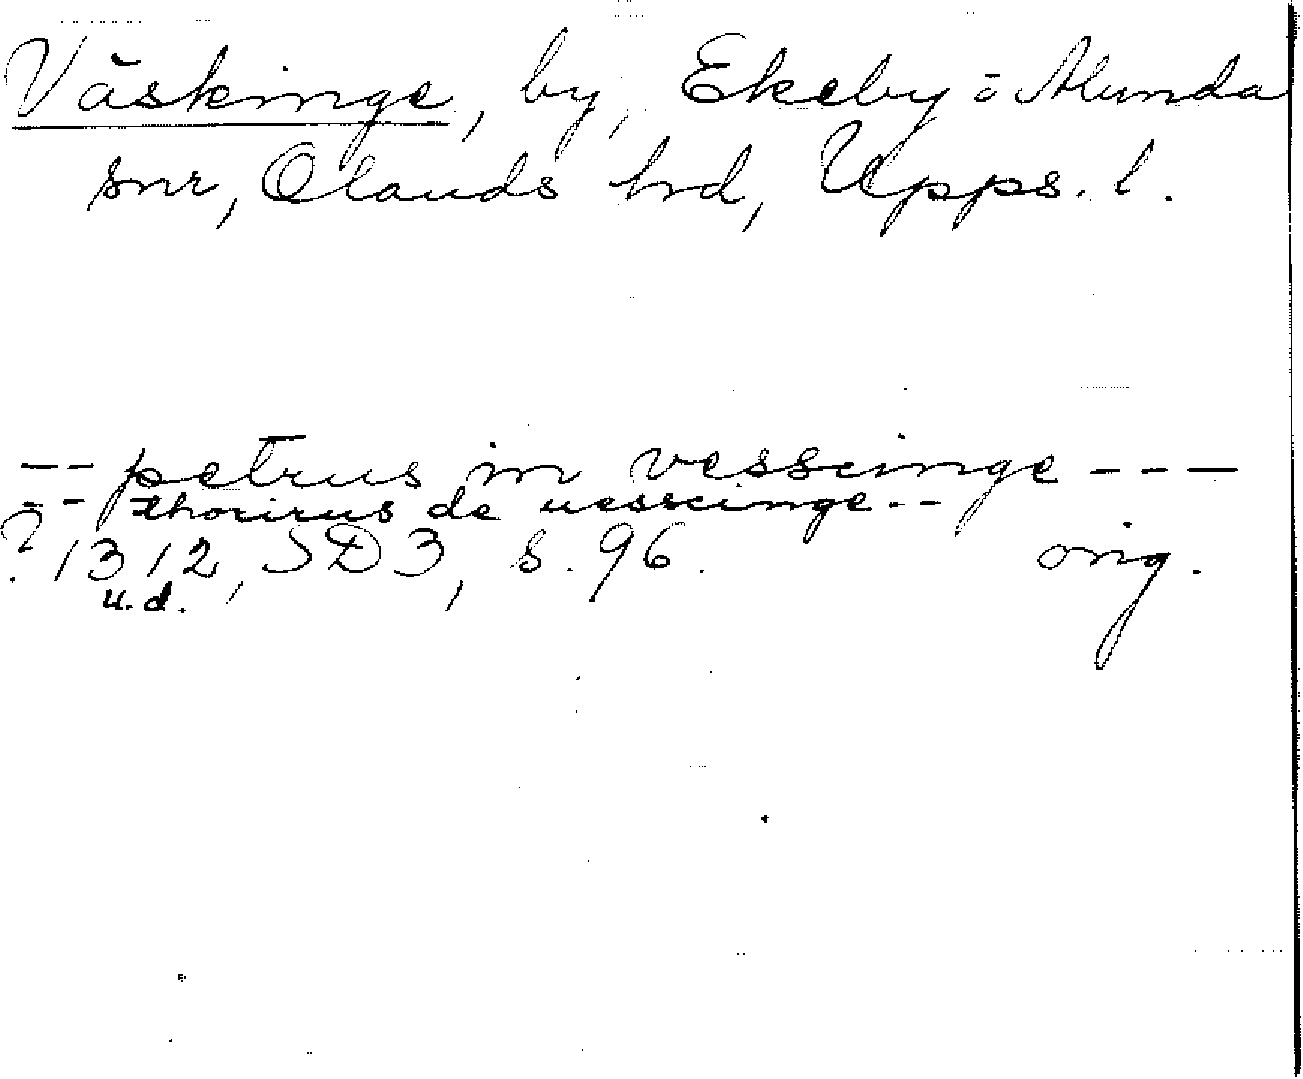 Väskinge, by, Ekeby o Alunda
snr, Olands hrd, Upps. l.
-- petrus in vesscinge ---
-- thorirus de uesscinge --
? 1312, SD3, s. 96. orig.
u.d.